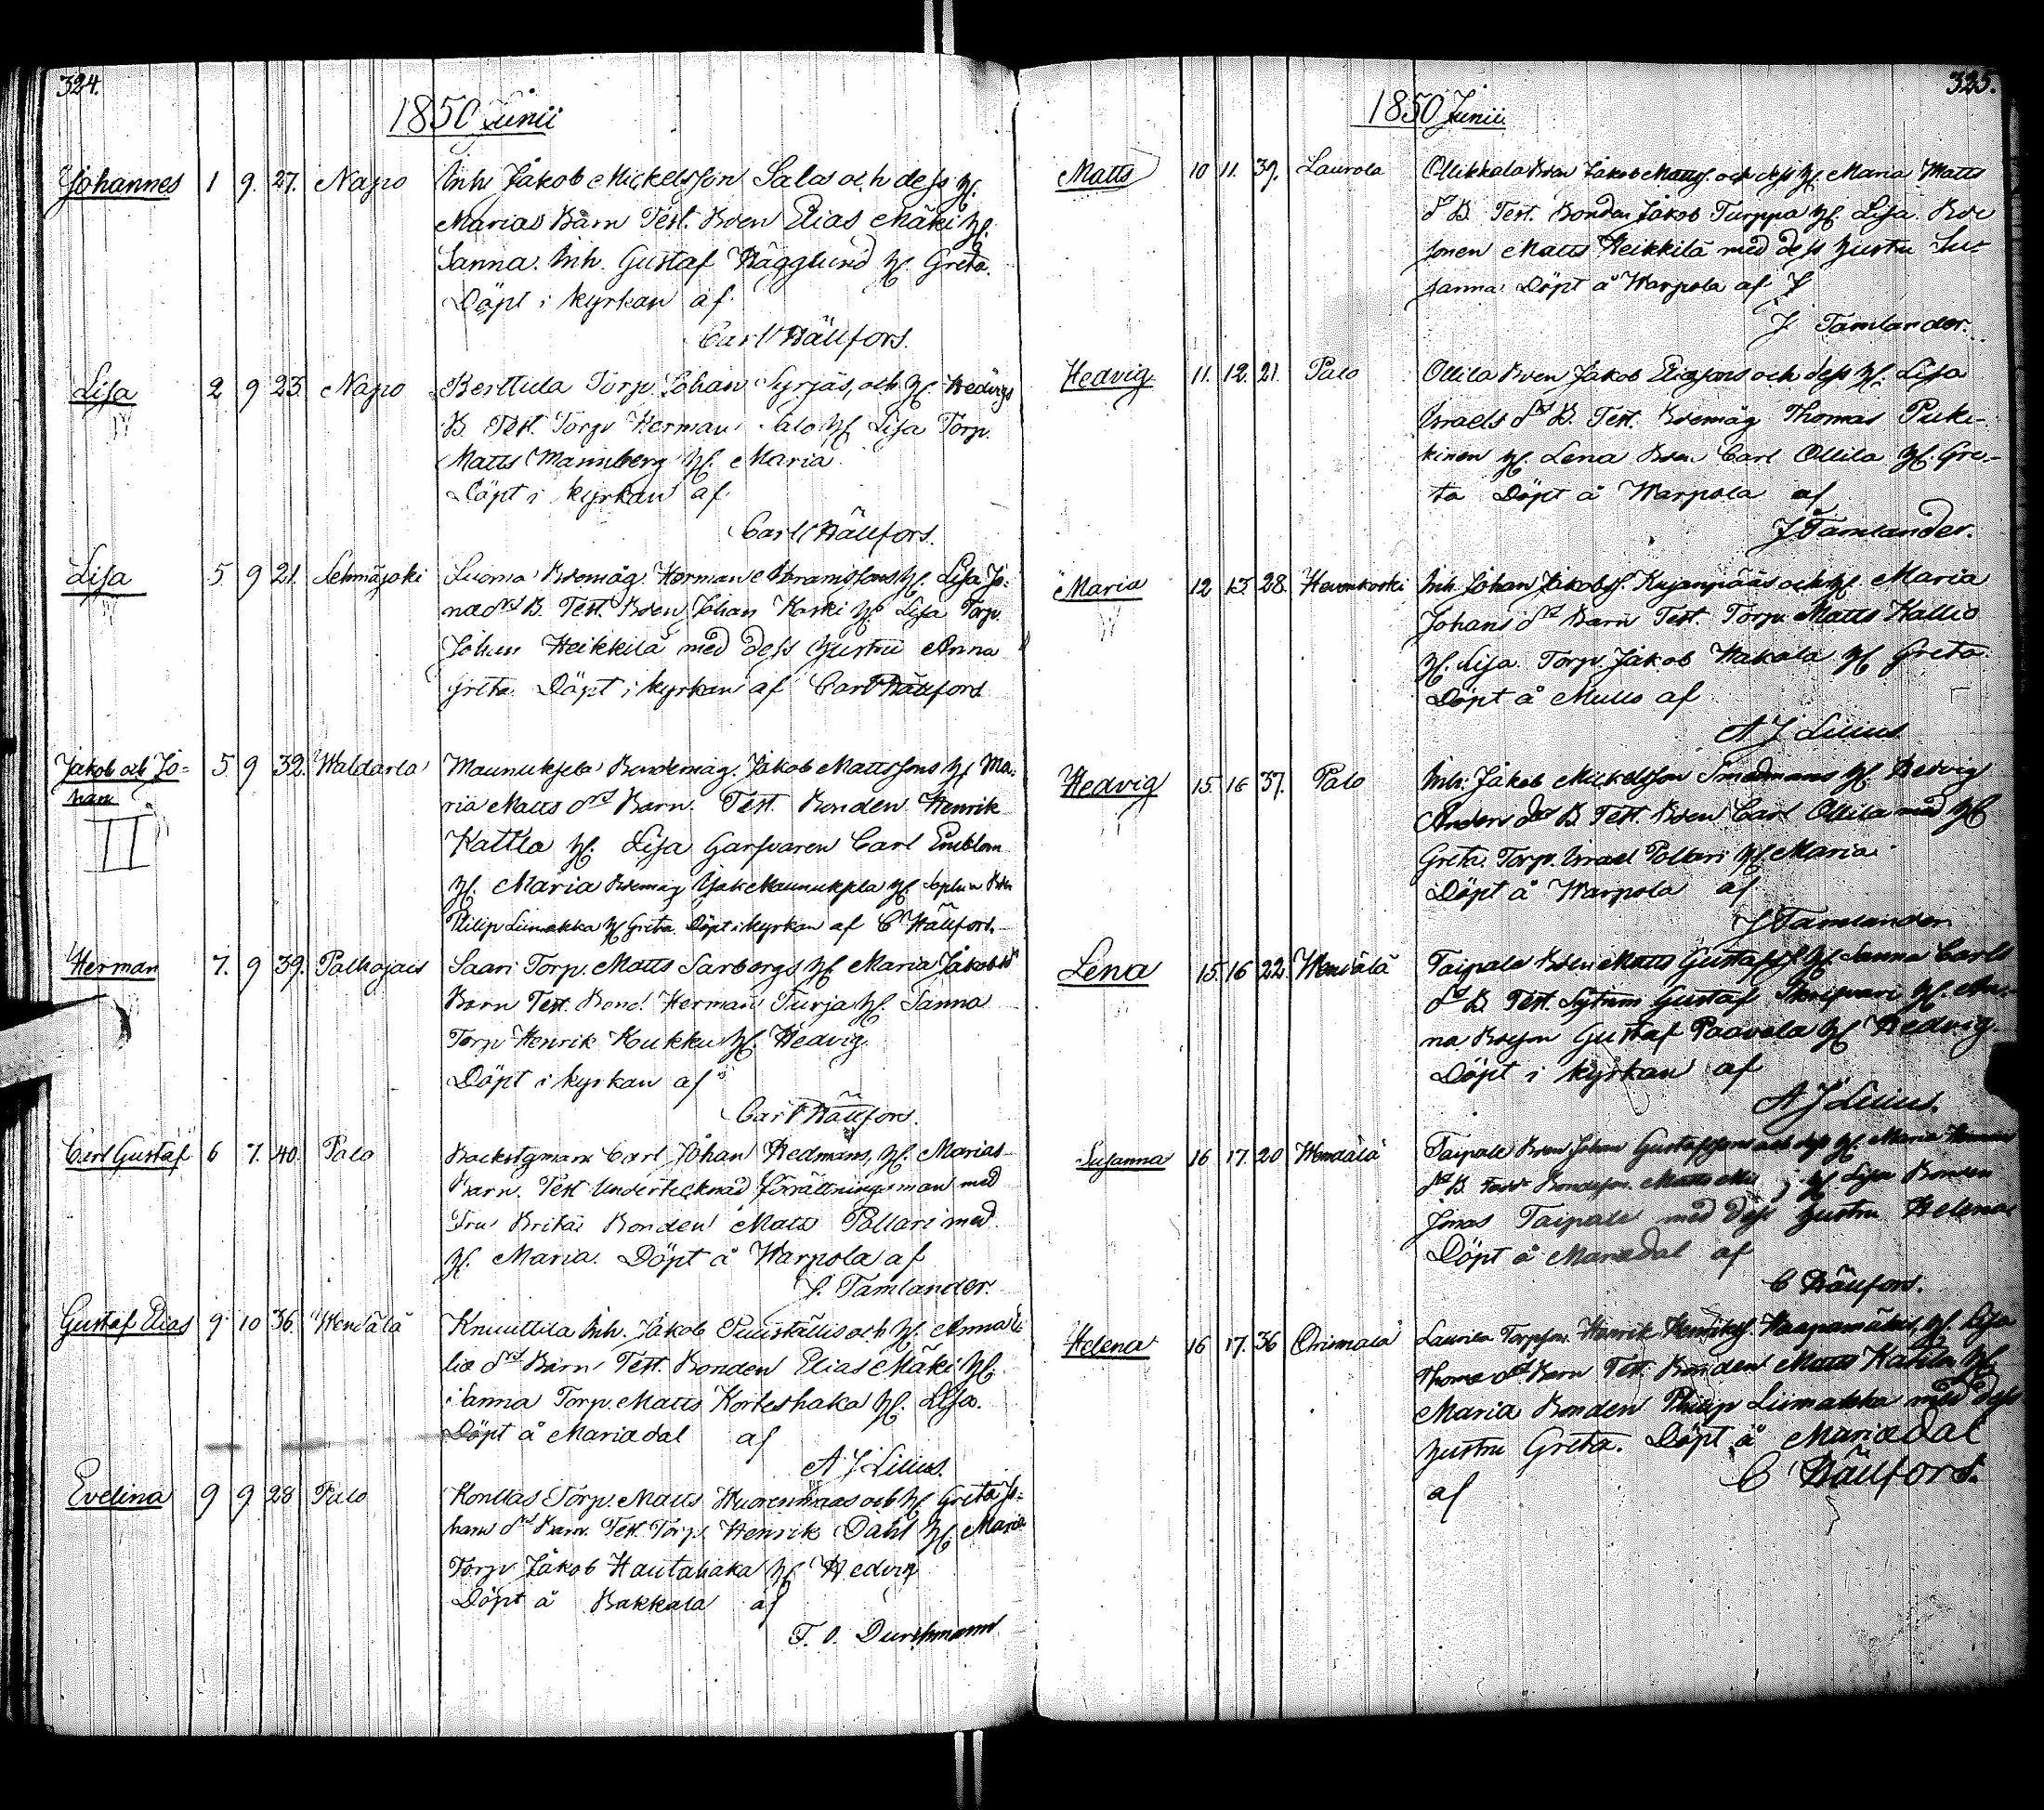 324.
1850 Junii
Johannes 1 9. 27. Napo Inh. Jakob Mickelsson Salas och dess H.
Marias Barn Test. Bden Elias Mäki H.
Sanna. Inh. Gustaf Hägglund H. Greta.
Döpt i kyrkan af
Carl Hällfors.
Lisa 2 9 23. Napo Berttula Torp. Johan Syrjäs, och H. Hedvigs
B. Test. Torp. Herman Salo H. Lisa Torp.
Matts Mannberg H. Maria.
Döpt i kyrkan af
Carl Hällfors.
Lisa 5 9 21. Lehmäjoki Luoma Bdemåg. Herman Abramssons H. Lisa Jo-
nae drs B. Test. Bden Johan Koski H. Lisa Torp.
Johan Heikkilä med dess hustru Anna
Greta. Döpt i kyrkan af Carl Hällfors
Jakob och Jo- 5. 9 32. Waldarla Maunuksela Bondemåg. Jakob Mattssons H. Ma-
han ria Matts drs Barn. Test. Bonden Henrik
II Kattla H. Lisa Garfvaren Carl Enblom
H. Maria Bdemåg Maunuksela H. Sophia Bden
Philip Liinakka H. Greta. Döpt i kyrkan af C Hällfors.
Herman 7. 9 39. Palhojais Saari Torp. Matts Sarbergs H. Maria Jakobs drs
Barn Test. Bond. Herman Turja H. Sanna
Torp Henrik Kukku H. Hedvig.
Döpt i kyrkan af
Carl Hällfors.
Carl Gustaf 6 7. 40. Palo Backstgmans Carl Johan Hedmans, H. Marias
Barn. Test Undertecknad förrättningsman med
Fru Brita Bonden Matts Pollari med
H. Maria. Döpt å Warpola af
J. Tamlander.
Gustaf Elias 9 10 36. Wendälä Knuuttila Inh. Jakob och H. Anna
liae drs Barn Test. Bonden Elias Mäki H.
Sanna Torp. Matts Korteshaka H. Lisa.
Döpt å Mariaedal af
A J Lilius.
Evelina 9 9 28 Palo Konttas Torp. Matts Huorenmaas och H. Greta Jo-
hans drs Barn. Test. Torp. Henrik Dahl H. Maria
Torp Jakob Hautahaka H. Hedvig
Döpt å Bakkala af
F. O. Durchmann
325.
1850 Junii
Matts 10 11. 39. Laurola Ollikkala Bden Jakob Mattss. och dess H. Maria Matts
drs B. Test. Bonden Jakob Turppa H. Lisa. Bde
sonen Matts Heikkilä med dess hustru Su-
sanna. Döpt å Warpola af J
J Tamlander.
Hedvig 11. 12. 21. Palo Ollila Bden Jakob Eliassons och dess H. Lisa
Israels drs B. Test. Bdemåg Thomas Puki-
kinen H. Lena Bden Carl Ollila H. Gre-
ta Döpt å Warpola af
J Tamlander.
Maria 12 13. 28. Hevonkoski Inh. Johan Jakobss. Kujanpääs och H. Maria
Johans drs Barn Test. Torp. Matts Kallio
H. Lisa. Torp. Jakob Hakala H Greta
Döpt å Mullo af
A J Lilius.
Hedvig 15. 16 37. Palo Inh. Jakob Mickelsson Smedmans H. Hedvig
Anders drs B. Test. Bden Carl Ollila med H
Greta Torp. Israel Pollari H. Maria.
Döpt å Warpola af
J Tamlander
Lena 15. 16 22. Wendälä Taipale Bden Matts Gustafss. H. Sanna Carls
drs B. Test. Sytnm Gustaf H. An-
na Bdeson Gustaf Paavola H Hedvig
Döpt i kyrkan af
A J Lilius.
Susanna 16 17. 20 Wendälä Taipale Bden Johan Gustafssons och dess H. Maria
drs B. Test Bondeson. Matts H Lisa Bonden
Jonas Taipale med dess hustru Helena
Döpt å Mariaedal af
C Hällfors.
Helena 16 17. 36 Orismala Laurila Torpson. Henrik Henrikss. Haapamäkis, H. Lisa
Thomae drs Barn Test. Bonden Matts Kattla H.
Maria Bonden Philip Liinakka med dess
hustru Greta. Döpt å Mariaedal
af C Hällfors.